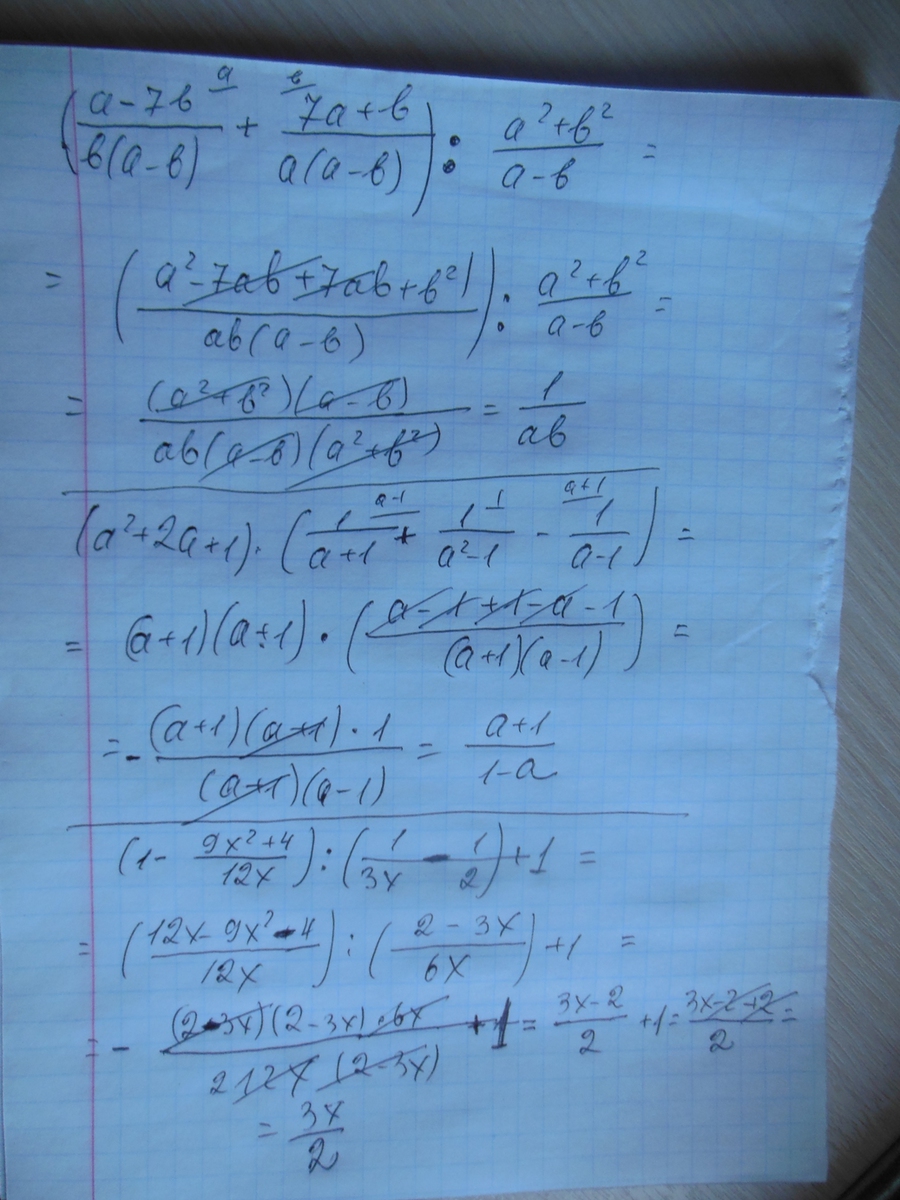 ((a-7b)/(b(a-b)) ᵃ + ᵇ (7a+b)/(a(a-b))) : (a²+b²)/(a-b) =
= ((a²-7ab+7ab+b²)/(ab(a-b))) : (a²+b²)/(a-b) =
= ((a²+b²)(a-b))/(ab(a-b)(a²+b²)) = 1/(ab)
(a²+2a+1)·(1/(a+1) ᵃ⁻¹ + 1/(a²-1) ¹ - ᵃ⁺¹ 1/(a-1)) =
= (a+1)(a+1)·((a-1+1-a-1)/((a+1)(a-1))) =
= -((a+1)(a+1)·1)/((a+1)(a-1)) = (a+1)/(1-a)
(1- (9x²+4)/(12x)) : (1/(3x) - 1/2) +1 =
= ((12x-9x²-4)/(12x)) : ((2-3x)/(6x)) +1 =
= - ((2-3x)(2-3x)·6x)/(2 12x (2-3x)) +1 = (3x-2)/2 +1 = (3x-2+2)/2 =
= 3x/2